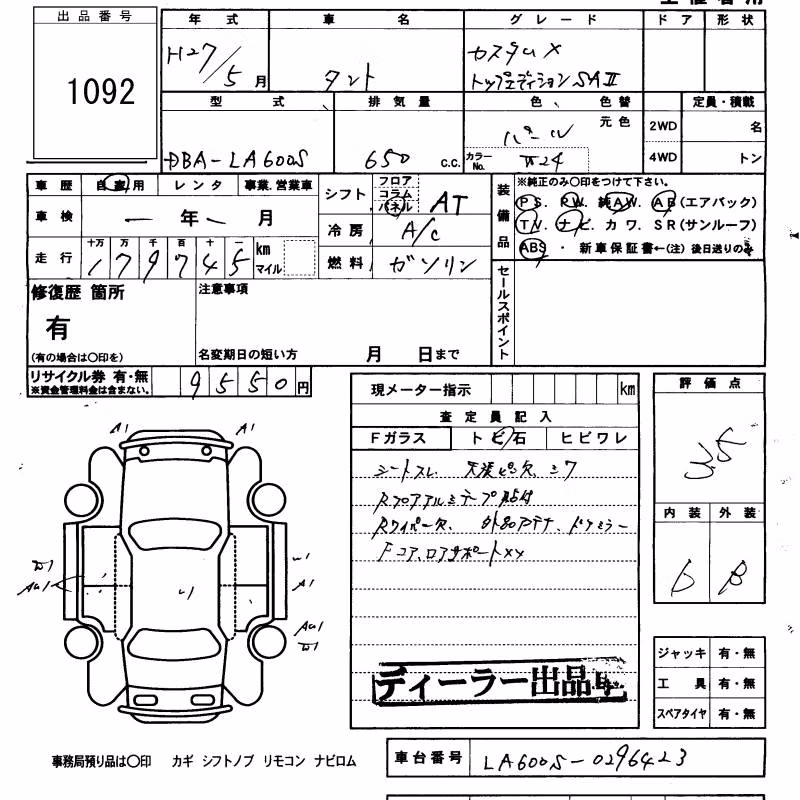 出品番号
1092
年式 車名 グレード ドア 形状
H27/5月 タント カスタムX
トップエディションSAⅡ
型式 排気量 色 色替 定員・積載
元色
DBA-LA600S 650 c.c. パール
カラーNo. W24
2WD 名
4WD トン
車歴 自家用 レンタ 事業.営業車
車検 ー年ー月
走行 十万 万 千 百 十 一 km マイル
179745
シフト フロア コラム パネル AT
冷房 A/C
燃料 ガソリン
装備品
※純正のみ〇印をつけて下さい。
PS. PW. 純AW. AB(エアバック)
TV. ナビ. カワ. SR(サンルーフ)
ABS ・ 新車保証書←(注)後日送りのみ
セールスポイント
修復歴 箇所
有
(有の場合は〇印を)
注意事項
名変期日の短い方 月 日まで
リサイクル券 有・無
※資金管理料金は含まない。
9550円
現メーター指示 km
査定員記入
Fガラス トビ石 ヒビワレ
シートスレ 天張ピン欠、シワ
Rフロアアルミテープ貼付
Rワイパー欠、 外品アンテナ、ドアミラー
Fコア、ロアサポートXX
ディーラー出品車
評価点
3.5
内装 外装
D B
ジャッキ 有・無
工具 有・無
スペアタイヤ 有・無
A1 A1
W1
AU1
U1
U1
A1
AU1
W1
事務局預り品は〇印 カギ シフトノブ リモコン ナビロム
車台番号 LA600S-0296423